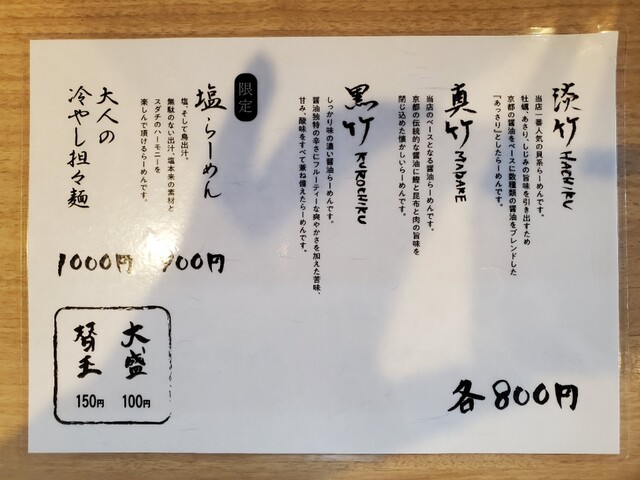 淡竹 HACHIKU
当店一番人気の貝系らーめんです。
牡蠣、あさり、しじみの旨味を引き出すため
京都の醤油をベースに数種類の醤油をブレンドした
「あっさり」としたらーめんです。
真竹 MADAKE
当店のベースとなる醤油らーめんです。
京都の伝統的な醤油に鰹と昆布と肉の旨味を
閉じ込めた懐かしいらーめんです。
黒竹 KUROCHIKU
しっかり味の濃い醤油らーめんです。
醤油独特の辛さにフルーティーな爽やかさを加えた苦味、
甘み、酸味をすべて兼ね備えたらーめんです。
各800円
限定
塩らーめん
塩、そして鳥出汁。
無駄のない出汁、塩本来の素材と
スダチのハーモニーを
楽しんで頂けるらーめんです。
900円
大人の
冷やし担々麺
1000円
大盛
100円
替玉
150円